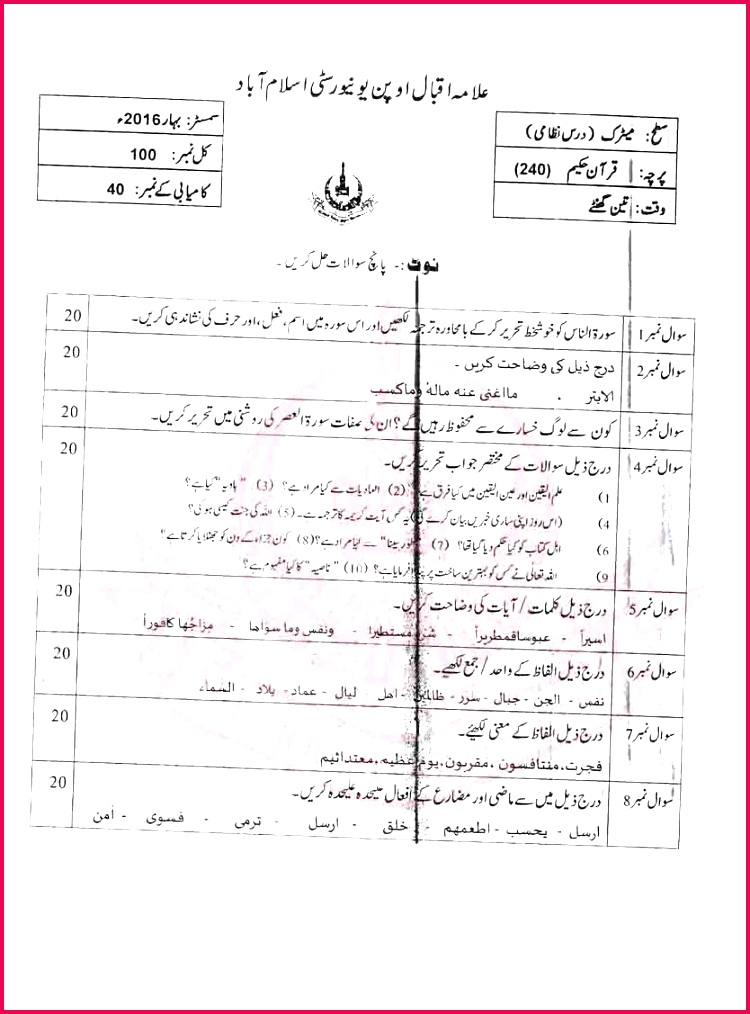 علامہ اقبال اوپن یونیورسٹی اسلام آباد
سطح: میٹرک (درس نظامی)
پرچہ: قرآن حکیم (240)
وقت: تین گھنٹے
سمسٹر: بہار 2016ء
کل نمبر: 100
کامیابی کے نمبر: 40
نوٹ :۔ پانچ سوالات حل کریں ۔
سوال نمبر 1 سورۃ الناس کو خوشخط تحریر کر کے بامحاورہ ترجمہ لکھیں اور اس سورہ میں اسم، فعل، اور حرف کی نشاندہی کریں۔ 20
سوال نمبر 2 درج ذیل کی وضاحت کریں ۔ 20
الابتر . مااغنی عنه مالهٗ وماکسب
سوال نمبر 3 کون سے لوگ خسارے سے محفوظ رہیں گے؟ ان کی صفات سورۃ العصر کی روشنی میں تحریر کریں۔ 20
سوال نمبر 4 درج ذیل سوالات کے مختصر جواب تحریر کریں۔ 20
1) علم الیقین اور عین الیقین میں کیا فرق ہے؟ (2) العادیات سے کیا مراد ہے؟ (3) "ہاویہ" کیا ہے؟
4) (اس روز اپنی ساری خبریں بیان کرے گی) یہ کس آیت کریمہ کا ترجمہ ہے۔ (5) اللہ کی جنت کیسی ہوئی؟
6) اہل کتاب کو کیا حکم دیا گیا تھا؟ (7) "طور سینا" سے کیا مراد ہے؟ (8) کون جزاء کے دن کو جھٹلایا کرتا ہے؟
9) اللہ تعالٰی نے کس کو بہترین ساخت پر پیدا فرمایا ہے؟ (10) "ناصیہ" کا کیا مفہوم ہے؟
سوال نمبر 5 درج ذیل کلمات / آیات کی وضاحت کریں۔ 20
اسیراً - عبوساقمطریراً - شره مستطیرا - ونفس وما سواها - مزاجُها کافوراً
سوال نمبر 6 درج ذیل الفاظ کے واحد / جمع لکھیے۔ 20
نفس - الجن - جبال - سرر - ظالمین - اهل - لیال - عماد - بلاد - السماء
سوال نمبر 7 درج ذیل الفاظ کے معنی لکھیئے ۔ 20
فجرت، متنافسون ، مقربون، یوم عظیم، معتداثیم
سوال نمبر 8 درج ذیل میں سے ماضی اور مضارع کے افعال علیحدہ علیحدہ کریں۔ 20
ارسل - یحسب - اطعمهم - خلق - ارسل - ترمی - فسوی - امن